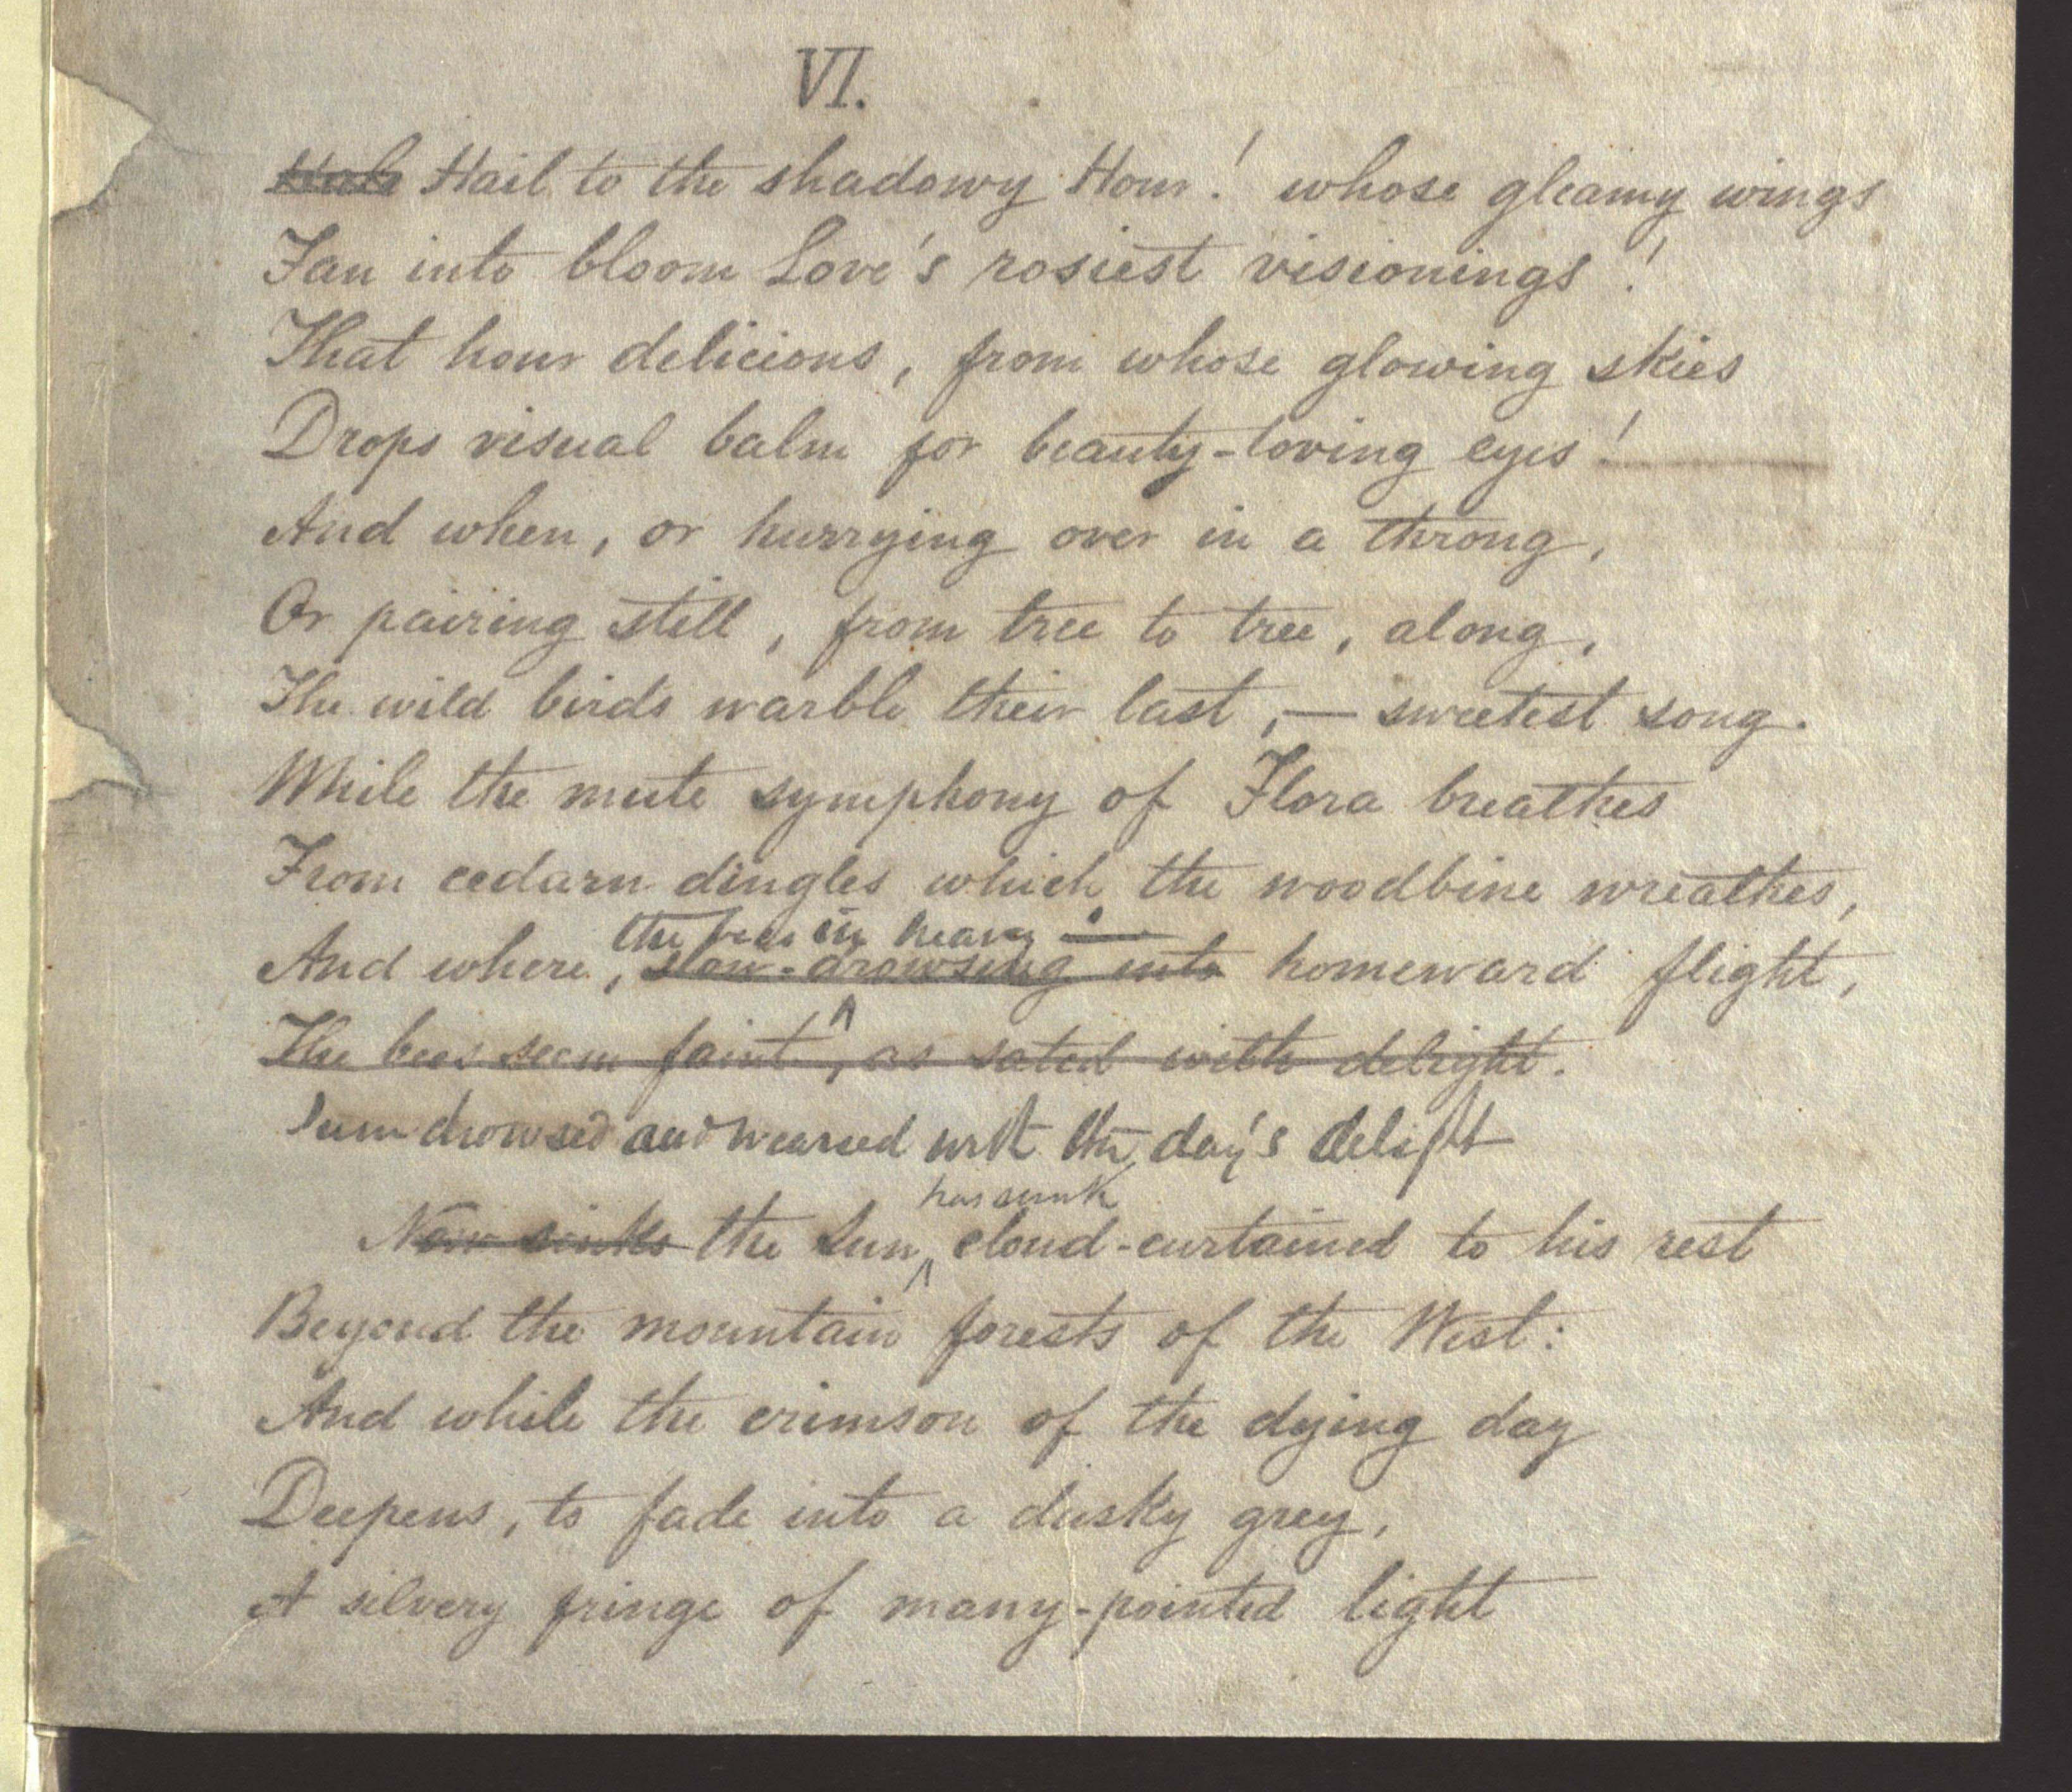 VI.
Hail to the shadowy Hour! whose gleamy wings
Fan into bloom Love's rosiest visionings!
That hour delicious, from whose glowing skies
Drops visual balm for beauty-loving eyes!
And when, or hurrying over in a throng,
Or pairing still, from tree to tree, along,
The wild birds warble their last,— sweetest song.
While the mute symphony of Flora breathes
From cedarn dingles which the woodbine wreathes,
the bees in heavy
And where, slow-drowsing into homeward flight,
The bees seem faint, as sated with delight.
Seem drowsed and wearied with the day's delight
has sunk
Now sinks the Sun cloud-curtained to his rest
Beyond the mountain forests of the West:
And while the crimson of the dying day
Deepens, to fade into a dusky grey,
A silvery fringe of many-pointed light